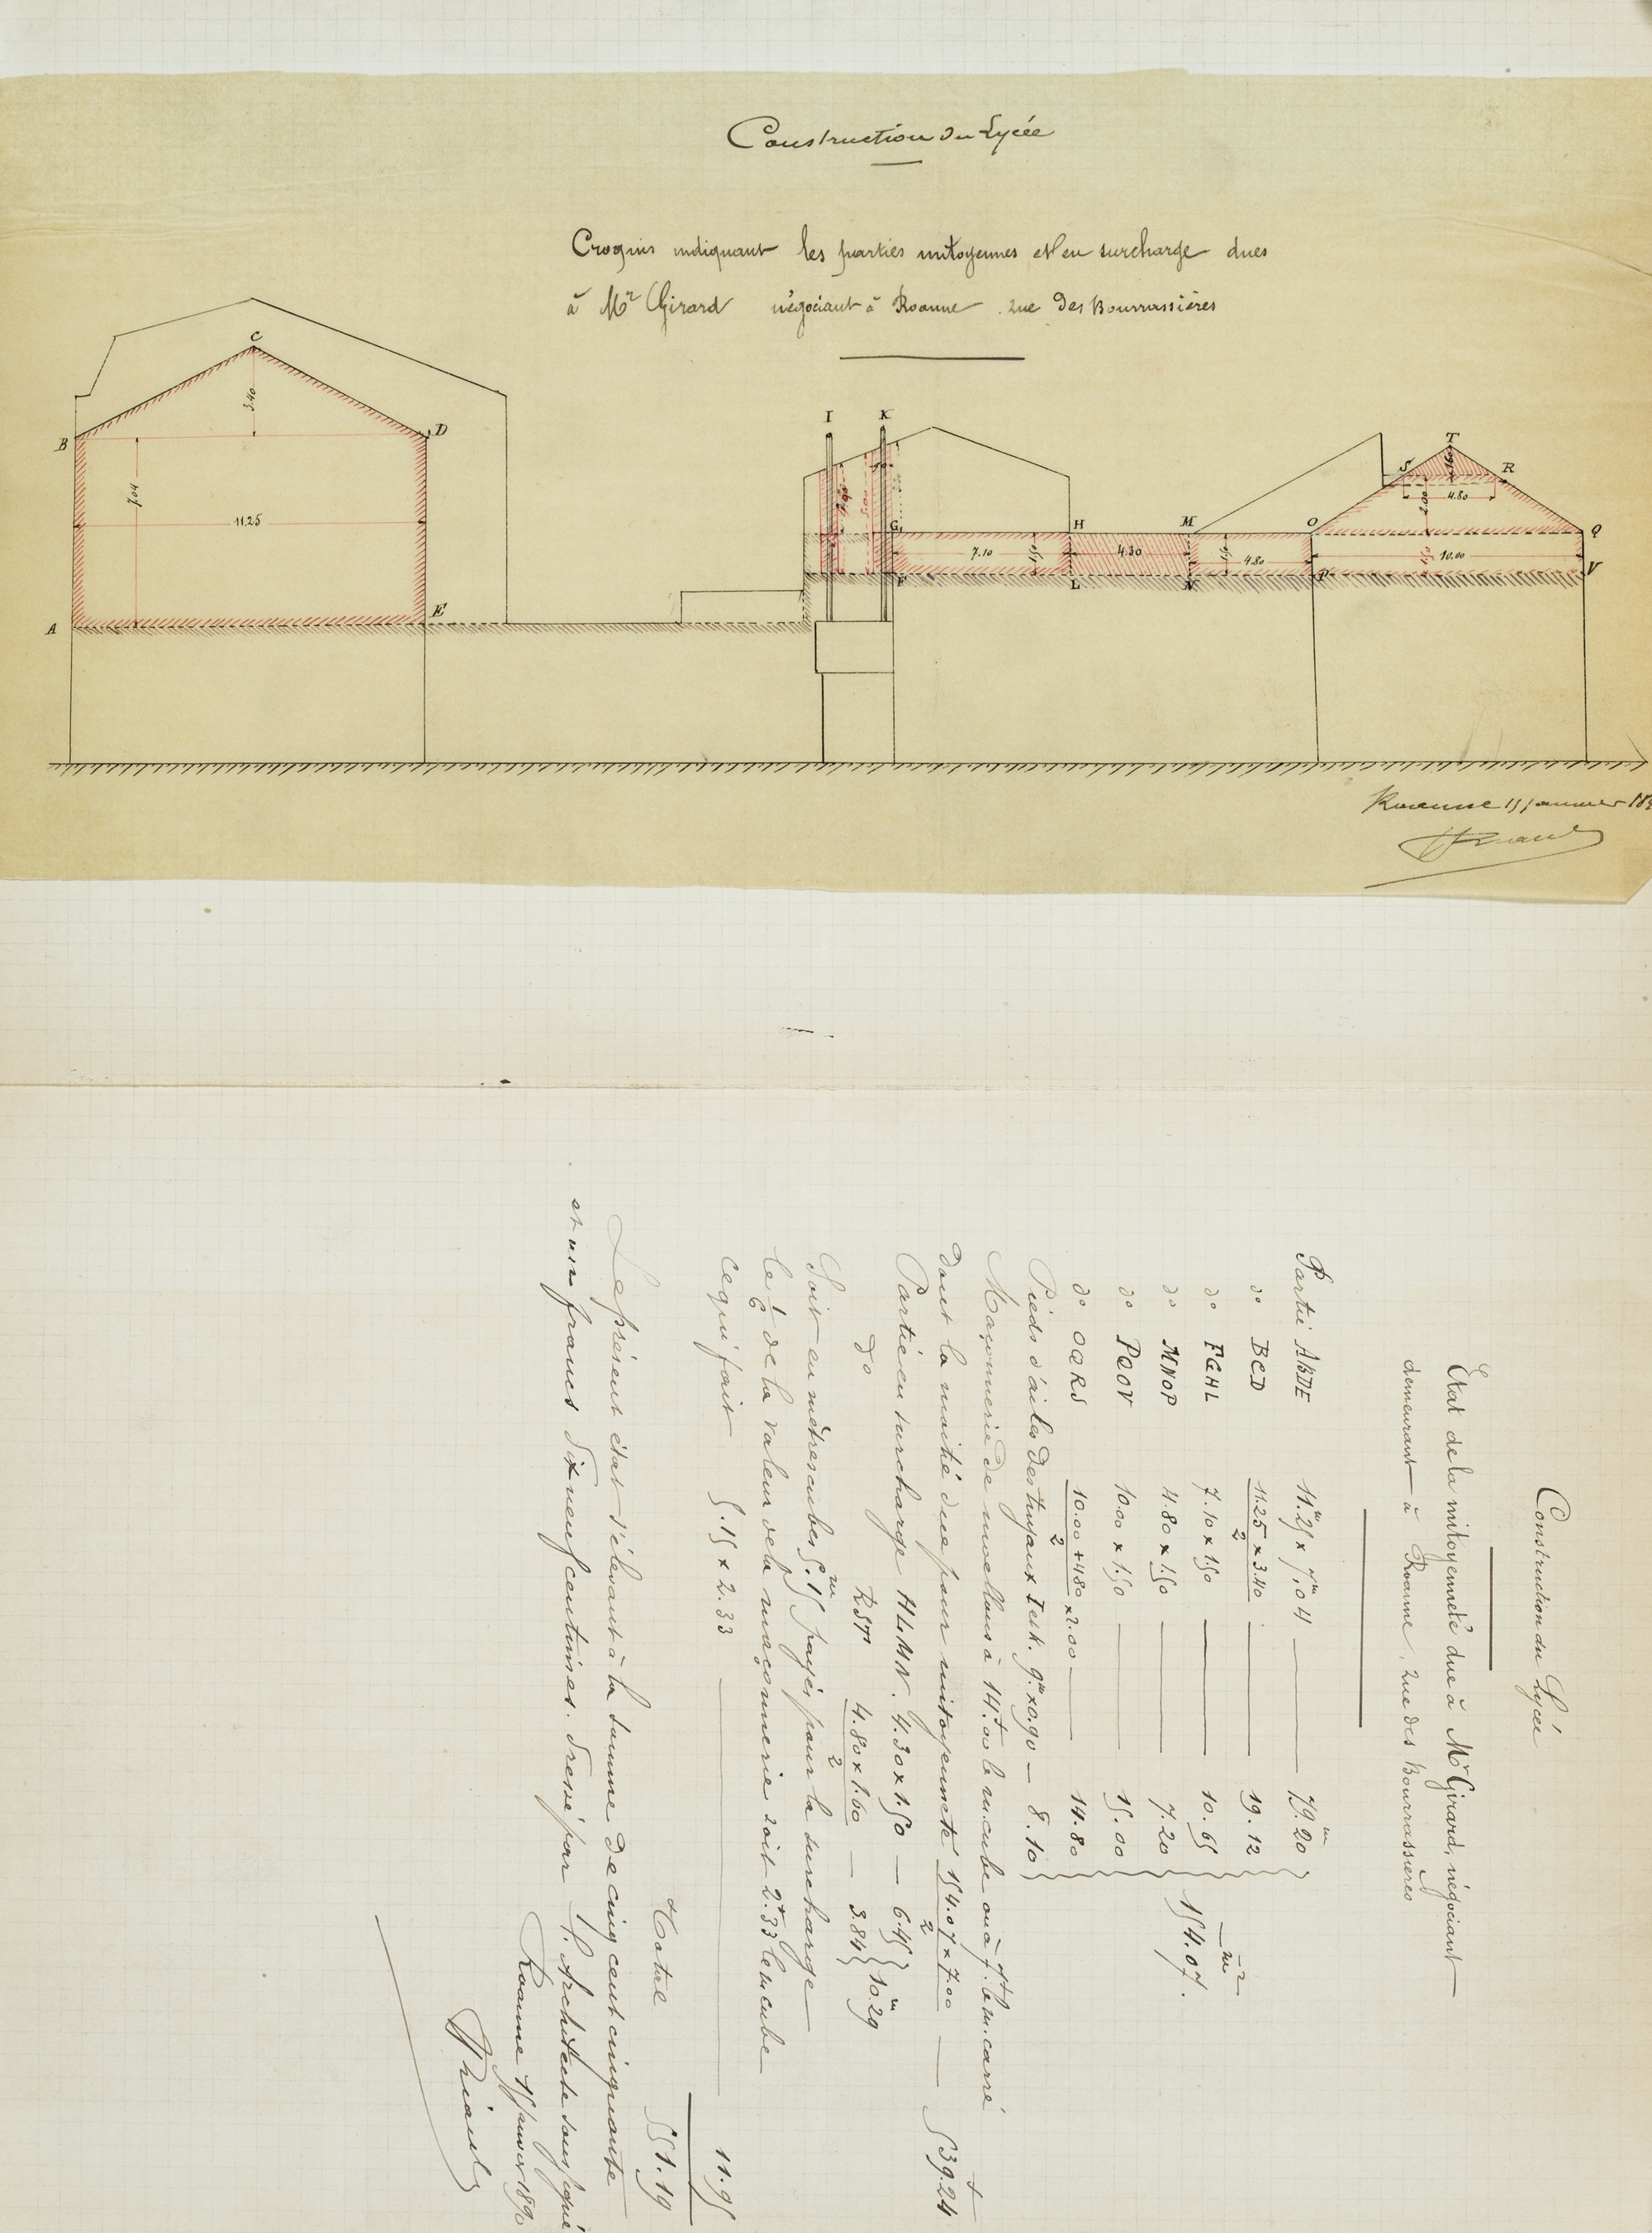 Construction du Lycée
Croquis indiquant les parties mitoyennes et en surcharge dues
à Mr Girard négociant à Roanne. rue des Bourrassières
C
3.40
B
D
7.04
11.25
A
E
I
K
G
H
M
O
S
T
R
Q
7.10
1.50
4.30
1.50
4.80
2.00
4.80
1.50
10.00
F
L
N
P
V
Roanne 15 janvier
Construction du Lycée
État de la mitoyenneté due à Mr Girard, négociant
demeurant à Roanne, rue des Bourrassières
Partie ABDE 11.m25 x 7.m04 79.m20
do BCD 11.25 x 3.40 / 2 19.12
do FGHL 7.10 x 1.50 10.65
do MNOP 4.80 x 1.50 7.20
do PQOV 10.00 x 1.50 15.00
do OQRS 10.00 + 4.80 / 2 x 2.00 14.80
Pieds d'ailes des tuyaux I et K. 9.m x 0.90 — 8.10
154.07.
Maçonnerie de moellons à 14.f00 le m. cube ou à 7.f le m. carré
dont la moitié due pour mitoyenneté 154.07 x 7.00 / 2 — 539.f24
Partie en surcharge HLMN. 4.30 x 1.50 — 6.45
do RST 4.80 x 1.60 / 2 — 3.84
10.m29
Soit en mètres cubes 5.m15 payés pour la surcharge
le 1/6 de la valeur de la maçonnerie soit 2.f33 le m cube
ce qui fait 5.15 x 2.33 11.95
Total 551.19
Le présent état s'élevant à la somme de cinq cent cinquante
et un francs dix neuf centimes. dressé par l'Architecte soussigné
Roanne 15 janvier 189